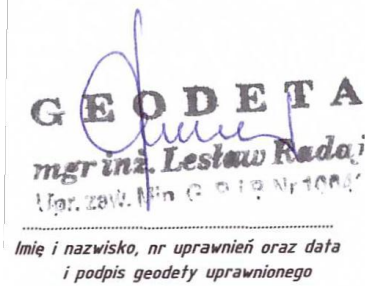 GEODETA
mgr inż. Lesław Radaj
Upr. zaw. Min. G.
Imię i nazwisko, nr uprawnień oraz data
i podpis geodety uprawnionego